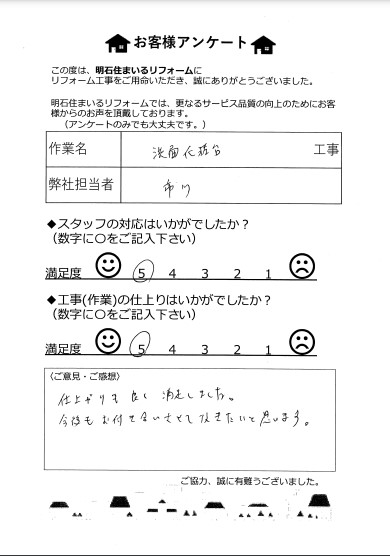 お客様アンケート
この度は、明石住まいるリフォームに
リフォーム工事をご用命いただき、誠にありがとうございました。
明石住まいるリフォームでは、更なるサービス品質の向上のためにお客
様からのお声を頂戴しております。
(アンケートのみでも大丈夫です。)
作業名 洗面化粧台 工事
弊社担当者 市川
◆スタッフの対応はいかがでしたか?
(数字に〇をご記入下さい)
満足度 5 4 3 2 1
◆工事(作業)の仕上りはいかがでしたか?
(数字に〇をご記入下さい)
満足度 5 4 3 2 1
〈ご意見・ご感想〉
仕上がりも良く満足しました。
今後もお付き合いさせて頂きたいと思います。
ご協力、誠に有難うございました。